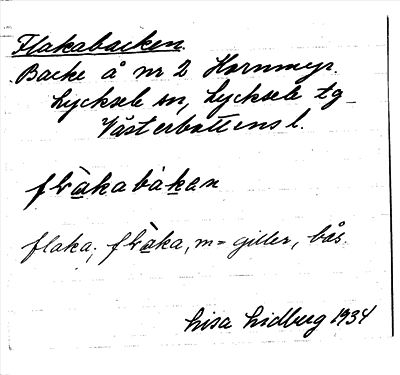 Flakabacken.
Backe å nr 2 Hornmyr.
Lycksele sn, Lycksele tg
Västerbottens l.
flàkabakan
flaka, flàka, m = giller, bås.
Lisa Lidberg 1934